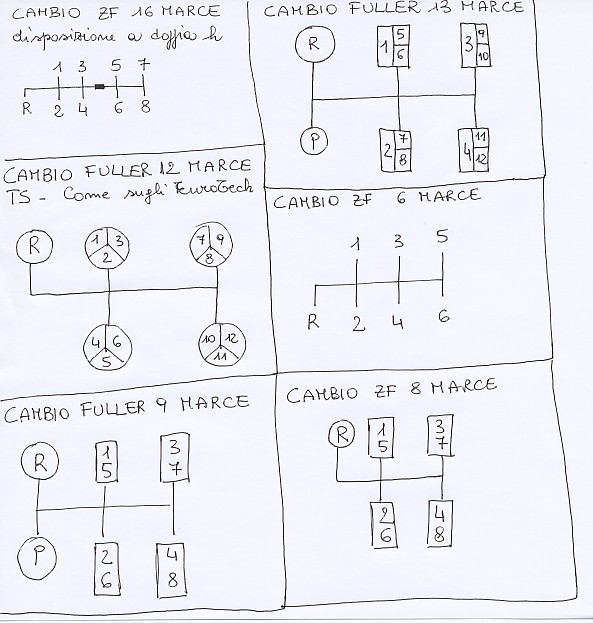 CAMBIO ZF 16 MARCE
disposizione a doppia h
1 3 5 7
R 2 4 6 8
CAMBIO FULLER 13 MARCE
R 1 5 6 3 9 10
P 2 7 8 4 11 12
CAMBIO FULLER 12 MARCE
TS - Come sugli EuroTech
R 1 3 2 7 9 8
4 6 5 10 12 11
CAMBIO ZF 6 MARCE
1 3 5
R 2 4 6
CAMBIO FULLER 9 MARCE
R 1 5 3 7
P 2 6 4 8
CAMBIO ZF 8 MARCE
R 1 5 3 7
2 6 4 8